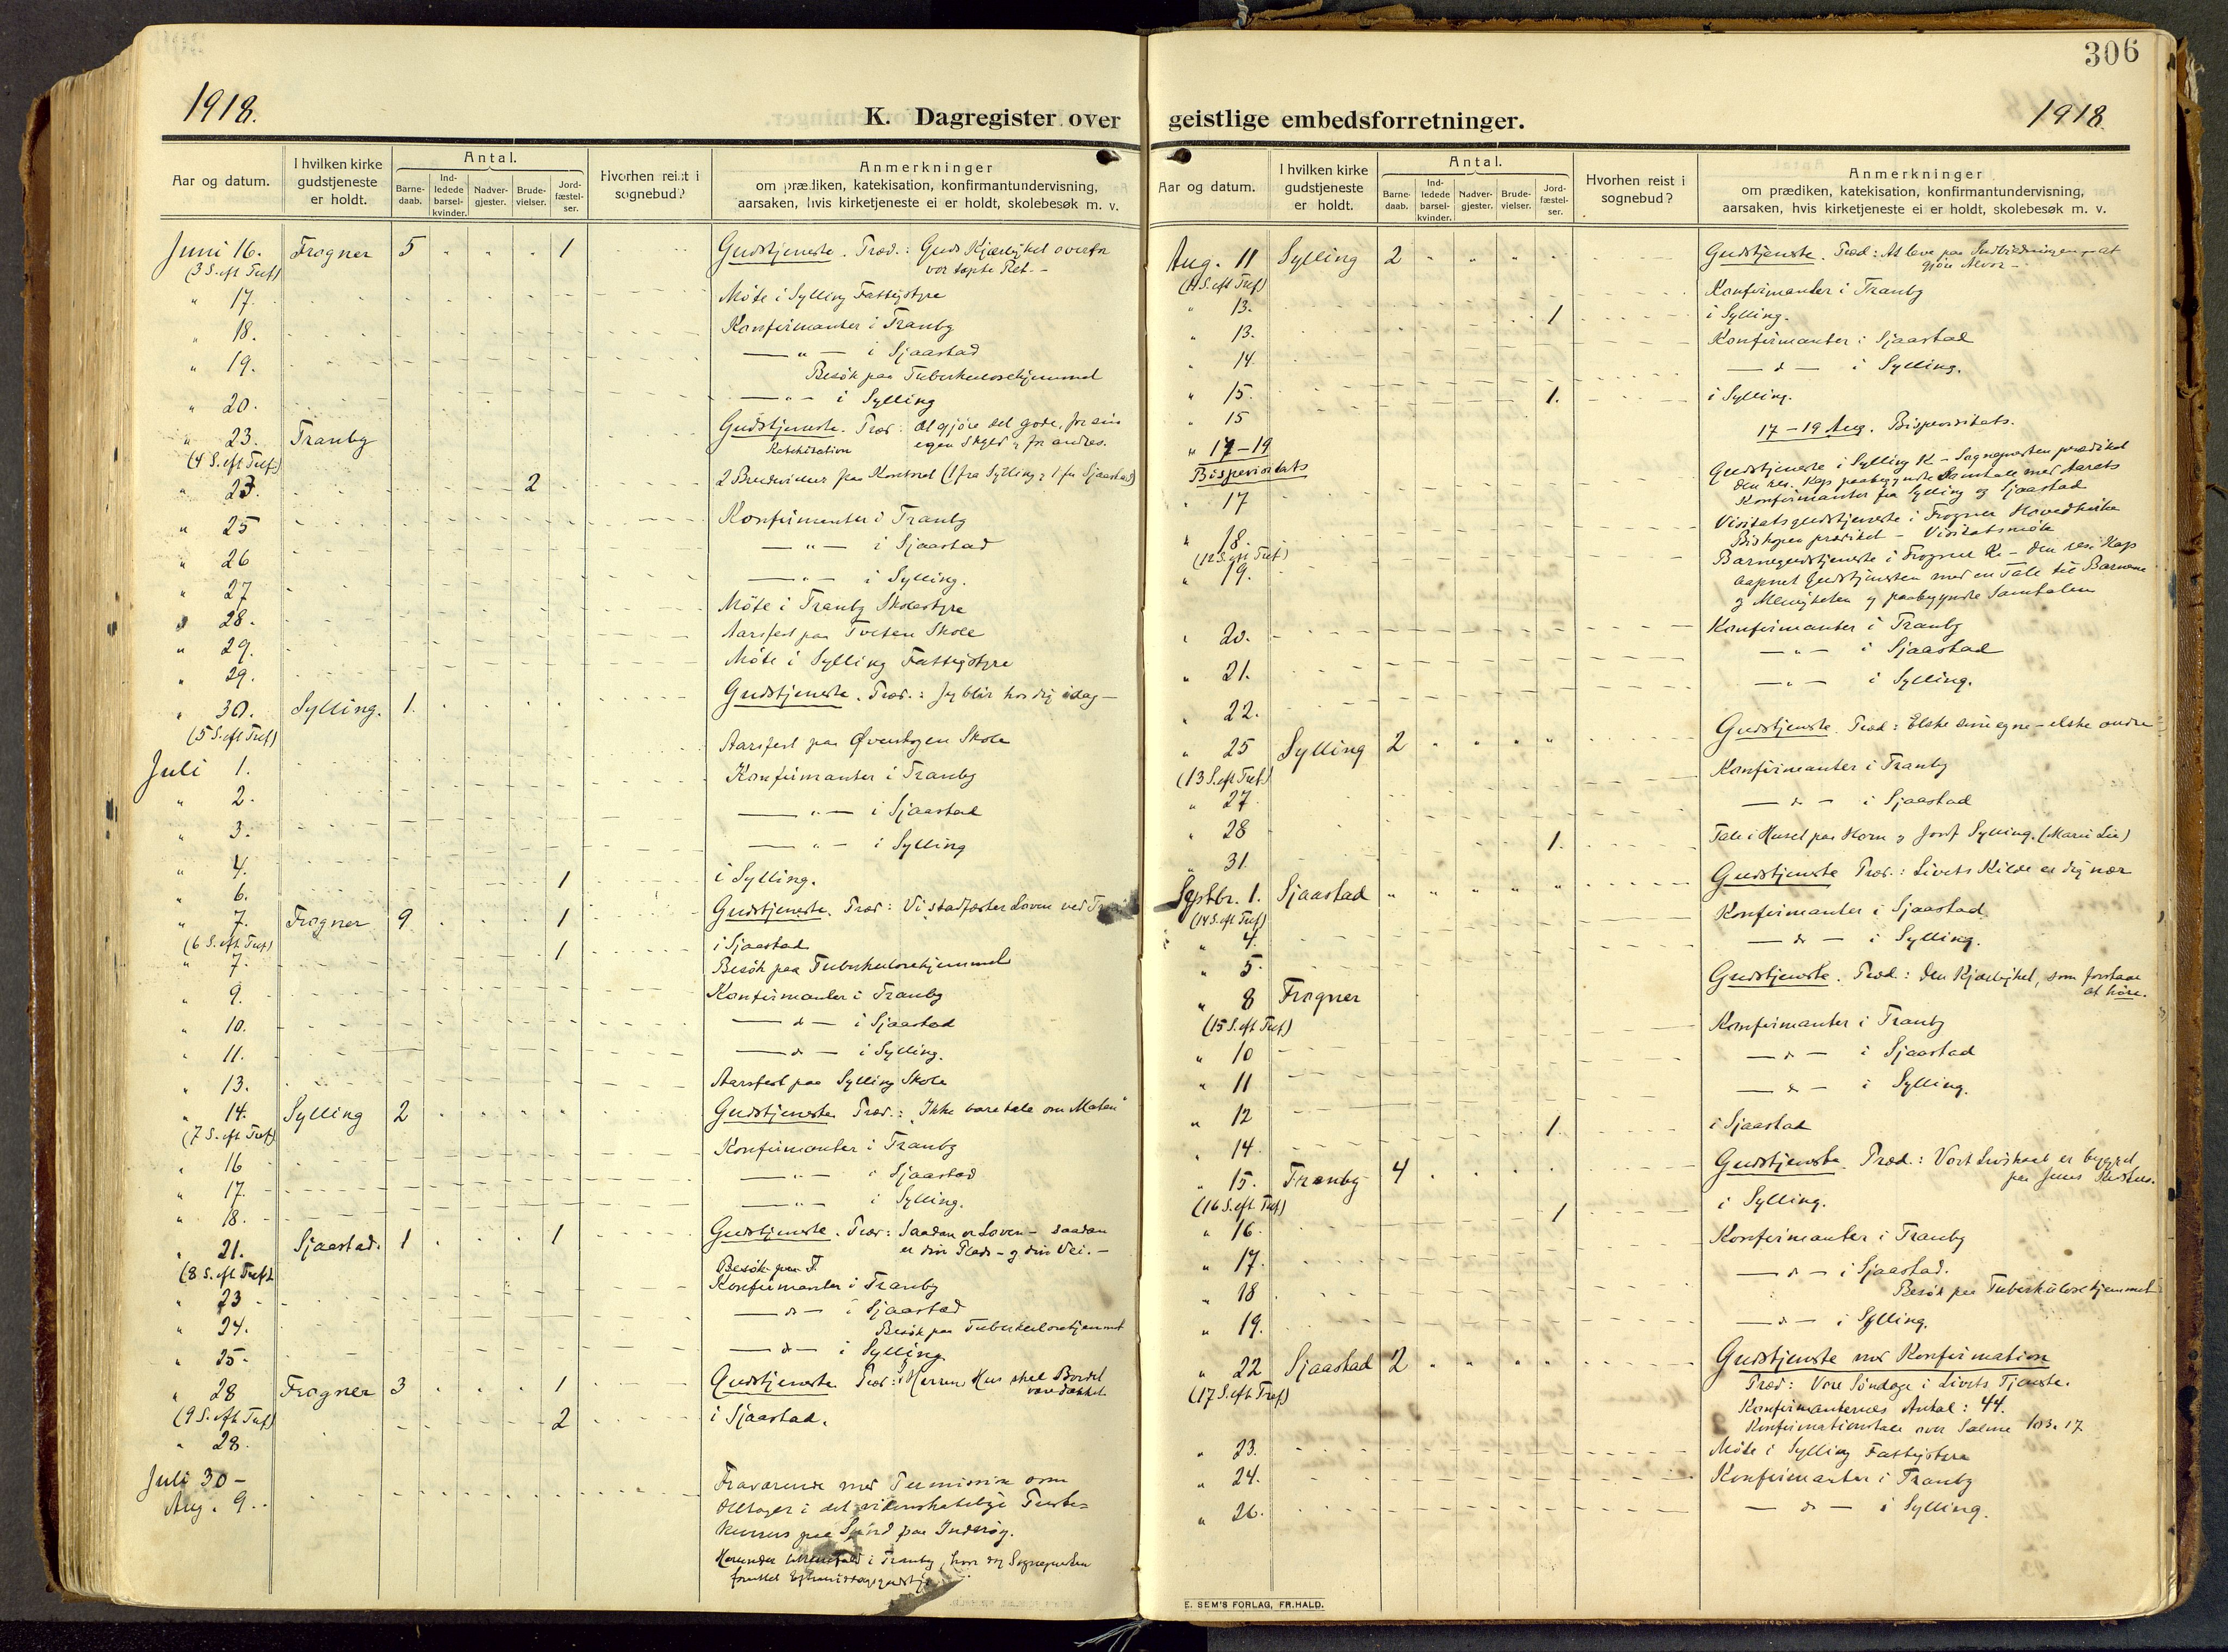 306
1918.
K. Dagregister over geistlige embedsforretninger.
1918.
Aar og datum.
I hvilken kirke gudstjeneste er holdt.
Antal.
Barne-daab.
Ind-ledede barsel-kvinder.
Nadver-gjester.
Brude-vielser.
Jord-fæstel-ser.
Hvorhen reist i sognebud?
Anmerkninger
om prædiken, katekisation, konfirmantundervisning,
aarsaken, hvis kirketjeneste ei er holdt, skolebesøk m. v.
Juni 16. Frogner 5 " " " 1 Gudstjeneste. Præd.: Guds Kjærlighet overfor
(3 S. eft Tref) vor tapte Ret. -
" 17. Møte i Sylling Fattigstyre
" 18. Konfirmanter i Tranby
" 19. — " — i Sjaastad
Besøk paa Tuberkulosehjemmet
" 20. — " — i Sylling
" 23. Tranby Gudstjeneste. Præd: At gjøre det gode, for sin
(4 S. eft Tref.) Katekisation egen Skyld og for andres.
" 23. 2 2 Brudevielser paa Kontoret (1 fra Sylling og 1 fra Sjaastad)
" 25 Konfirmanter i Tranby
" 26 — " — i Sjaastad
" 27 — " — i Sylling.
" 28. Møte i Tranby Skolestyre
" 29. Aarsfest paa Tveten Skole
" 29. Møte i Sylling Fattigstyre
" 30. Sylling. 1. Gudstjeneste. Præd.: Jeg blir hos dig idag —
(5 S. eft Tref)
Juli 1. Aarsfest paa Øverskogen Skole
" 2. Konfirmanter i Tranby
" 3. — " — i Sjaastad
" 4. — " — i Sylling
" 6. 1 i Sylling.
" 7. Frogner 9 1 Gudstjeneste. Præd: Vi stadfæster Loven ved
(6 S. eft Tref)
" 7. 1 i Sjaastad
Besøk paa Tuberkulosehjemmet
" 9. Konfirmanter i Tranby
" 10. — " — i Sjaastad
" 11. — " — i Sylling.
" 13. Aarsfest paa Sylling Skole
" 14. Sylling 2 Gudstjeneste Præd.: "Ikke bare tale om Maten"
(7 S. eft Tref)
" 16 Konfirmanter i Tranby
" 17. — " — i Sjaastad
" 18. — " — i Sylling.
" 21. Sjaastad. 1 1 Gudstjeneste. Præd: Saadan er Loven – saadan
(8 S. eft Tref) er din Plads – og din Vei. –
Besøk paa T.
" 23 Konfirmanter i Tranby
" 24. — " — i Sjaastad
Besøk paa Tuberkulosehjemmet
" 25. — " — i Sylling
" 28 Frogner 3 1 Gudstjeneste Præd: I Herrens Hus skal Bordet
(9 S. eft Tref) være dækket
" 28. 2 i Sjaastad.
Juli 30 –
Aug. 9. Fraværende med Permission som
deltager i det videnskabelige
kursus paa Sund paa Inderøy.
Herunder i Tranby, hvor Sognepresten
Aar og datum.
I hvilken kirke gudstjeneste er holdt.
Antal.
Barne-daab.
Ind-ledede barsel-kvinder.
Nadver-gjester.
Brude-vielser.
Jord-fæstel-ser.
Hvorhen reist i sognebud?
Anmerkninger
om prædiken, katekisation, konfirmantundervisning,
aarsaken, hvis kirketjeneste ei er holdt, skolebesøk m. v.
Aug. 11 Sylling 2 Gudstjeneste. Præd: At leve paa Indbildningen – at
(11 S. eft Tref) gjøre Alvor –
" 13. Konfirmanter i Tranby
" 13. 1 i Sylling.
" 14. Konfirmanter i Sjaastad
" 15. — " — i Sylling.
" 15 1. i Sylling.
" 17–19 17–19 Aug. Bispevisitats.
Bispevisitats
" 17 Gudstjeneste i Sylling K – Sognepresten prædiket
den res. Kap paabegyndte Samtale med Aarets
Konfirmanter fra Sylling og Sjaastad
" 18. Visitatsgudstjeneste i Frogner Hovedkirke
(12 S. eft Tref) Biskopen prædiket – Visitatsmøte
" 19. Barnegudstjeneste i Frogner K. – den res. Kap
aapnet Gudstjenesten med en Tale til Barnene
og Menigheten og paabegyndte Samtalen
" 20. Konfirmanter i Tranby
" 21. — " — i Sjaastad
" 22. — " — i Sylling.
" 25 Sylling 2 Gudstjeneste. Præd: Elske sine egne – elske andre
(13 S. eft Tref.)
" 27 Konfirmanter i Tranby
" 28 — " — i Sjaastad
" 31. 1. Tale i Huset paa Horn og Jordf Sylling. (Marie Lie)
Septbr. 1. Sjaastad Gudstjeneste Præd.: Livets Kilde er dig nær
(14 S. eft Tref)
" 4. Konfirmanter i Sjaastad
" 5. — " — i Sylling.
" 8 Frogner Gudstjeneste. Præd.: Den Kjærlighet, som forstaar
(15 S. eft Tref) at høre.
" 10 Konfirmanter i Tranby
" 11 — " — i Sjaastad
" 12 — " — i Sylling.
" 14. 1. i Sjaastad
" 15. Tranby 4 Gudstjeneste. Præd.: Vort Livshaab er bygget
(16 S. eft Tref) paa Jesus Kristus.
" 16. 1 i Sylling.
" 17. Konfirmanter i Tranby
" 18 — " — i Sjaastad.
Besøk paa Tuberkulosehjemmet
" 19. — " — i Sylling.
" 22 Sjaastad 2 Gudstjeneste med Konfirmation
(17 S. eft Tref) Præd: Vore Søndage i Livets Tjeneste.
Konfirmanternes Antal: 44.
Konfirmationstale over Salme 103. 17
" 23. Møte i Sylling Fattigstyre
" 24. Konfirmanter i Tranby
" 26. — " — i Sylling.
E. SEM'S FORLAG, FR.HALD.